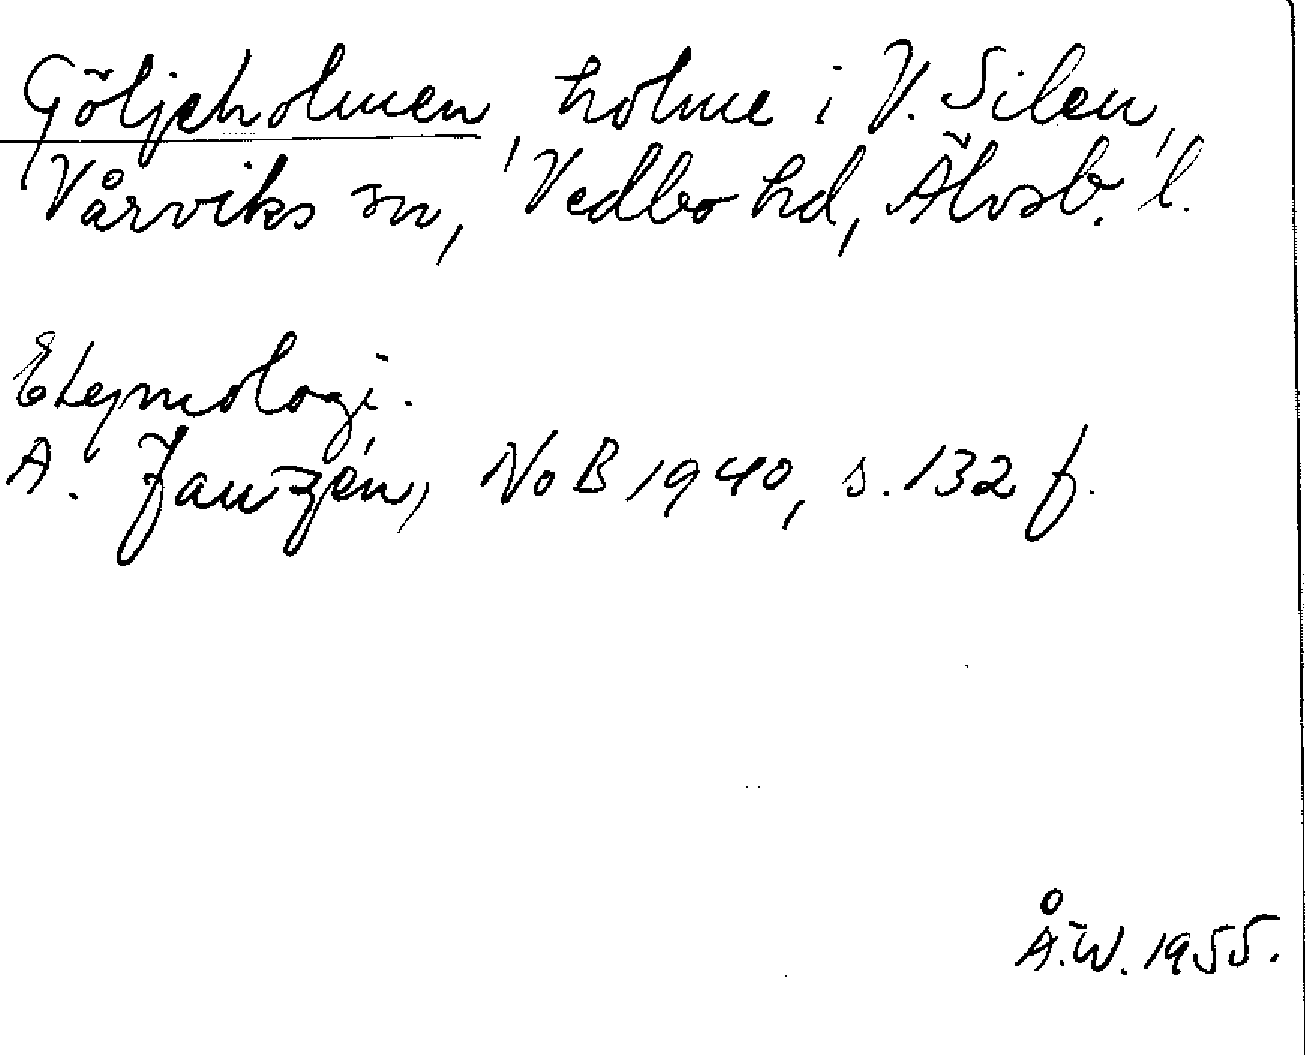 Göljeholmen, holme i V. Silen,
Vårviks sn, Vedbo hd, Älvsb. l.
Etymologi.
A. Janzén, NoB 1940, s. 132 f.
Å.W. 1955.